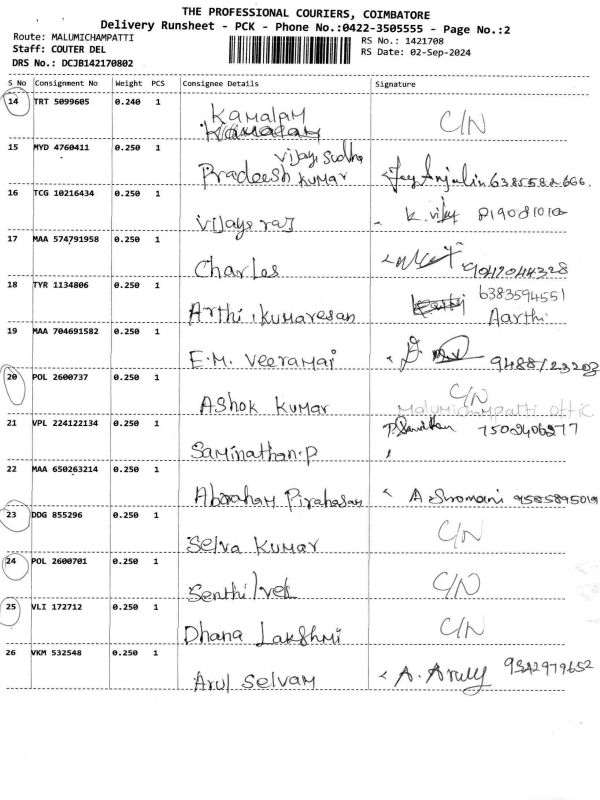 THE PROFESSIONAL COURIERS, COIMBATORE
Delivery Runsheet - PCK - Phone No.:0422-3505555 - Page No.:2
Route: MALUMICHAMPATTI
RS No.: 1421708
Staff: COUTER DEL
RS Date: 02-Sep-2024
DRS No.: DCJB142170802
S No Consignment No Weight PCS Consignee Details Signature
14 TRT 5099605 0.240 1 Kamalam C/N
15 MYD 4760411 0.250 1 Vijay Sudha
Pradeesh Kumar 6385582666.
16 TCG 10216434 0.250 1 Vijayaraj K. Vijay
17 MAA 574791958 0.250 1 Charles 9042044328
18 TYR 1134806 0.250 1 Arthi .kumaresan 6383594551
Aarthi
19 MAA 704691582 0.250 1 E.M. Veeramai
20 POL 2600737 0.250 1 Ashok Kumar C/N
Malumichampatti Offic
21 VPL 224122134 0.250 1 Saminathan.P
22 MAA 650263214 0.250 1 Abraham Pirahasam 9585895019
23 DDG 855296 0.250 1 Selva Kumar C/N
24 POL 2600701 0.250 1 Senthilvel C/N
25 VLI 172712 0.250 1 Dhana Lakshmi C/N
26 VKM 532548 0.250 1 Arul Selvam A. Aruly 9342979652